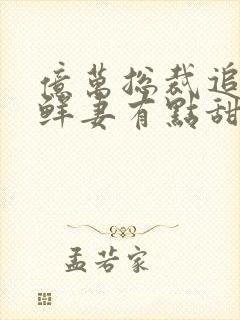 億萬總裁追
鮮妻有點甜
孟若家